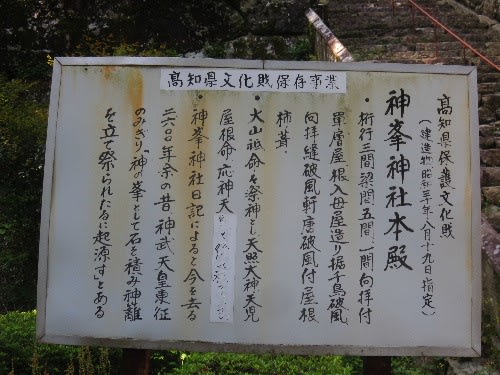 高知県文化財保存事業
高知県保護文化財
(建造物 昭和三十一年八月十九日指定)
神峯神社本殿
・桁行三間、梁間五間、一間向拝付
単層屋根入母屋造り据千鳥破風
向拝縋破風軒唐破風付屋根
柿葺、
・大山祗命を祭神とし天照大神天児
屋根命、応神天
・神峯神社日記によると今を去る
二六〇〇年余の昔、神武天皇東征
のみぎり、「神の峯」として石を積み神籬
を立て祭られたるに起源す」とある